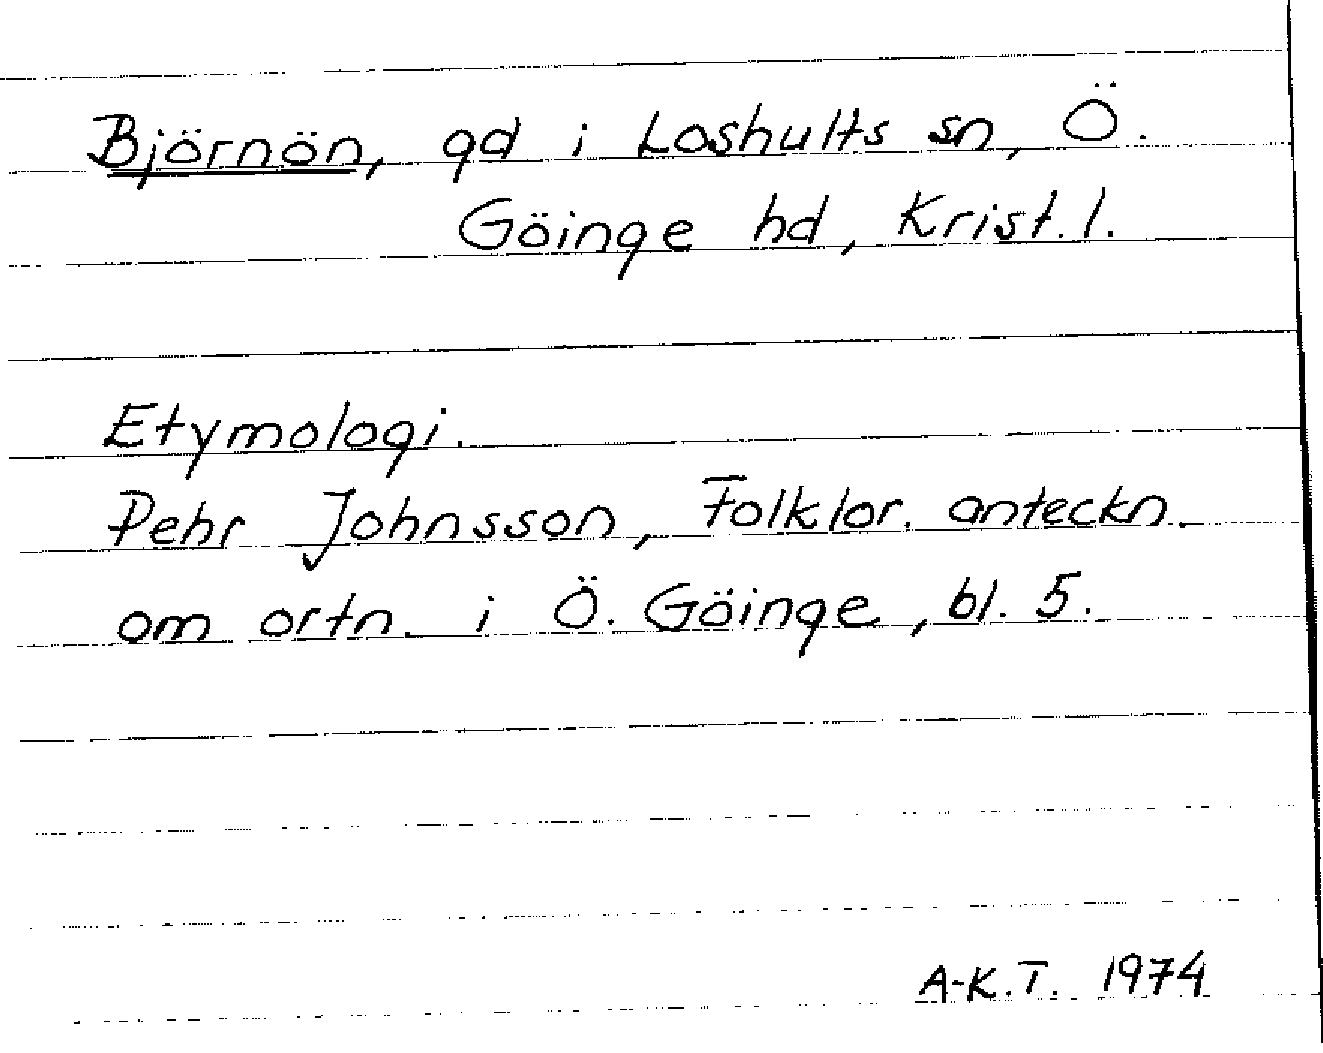 Björnön, gd i Loshults sn, Ö.
Göinge hd, Krist. l.
Etymologi.
Pehr Johnsson, Folklor. anteckn.
om ortn. i Ö. Göinge, bl. 5.
A-K.T. 1974